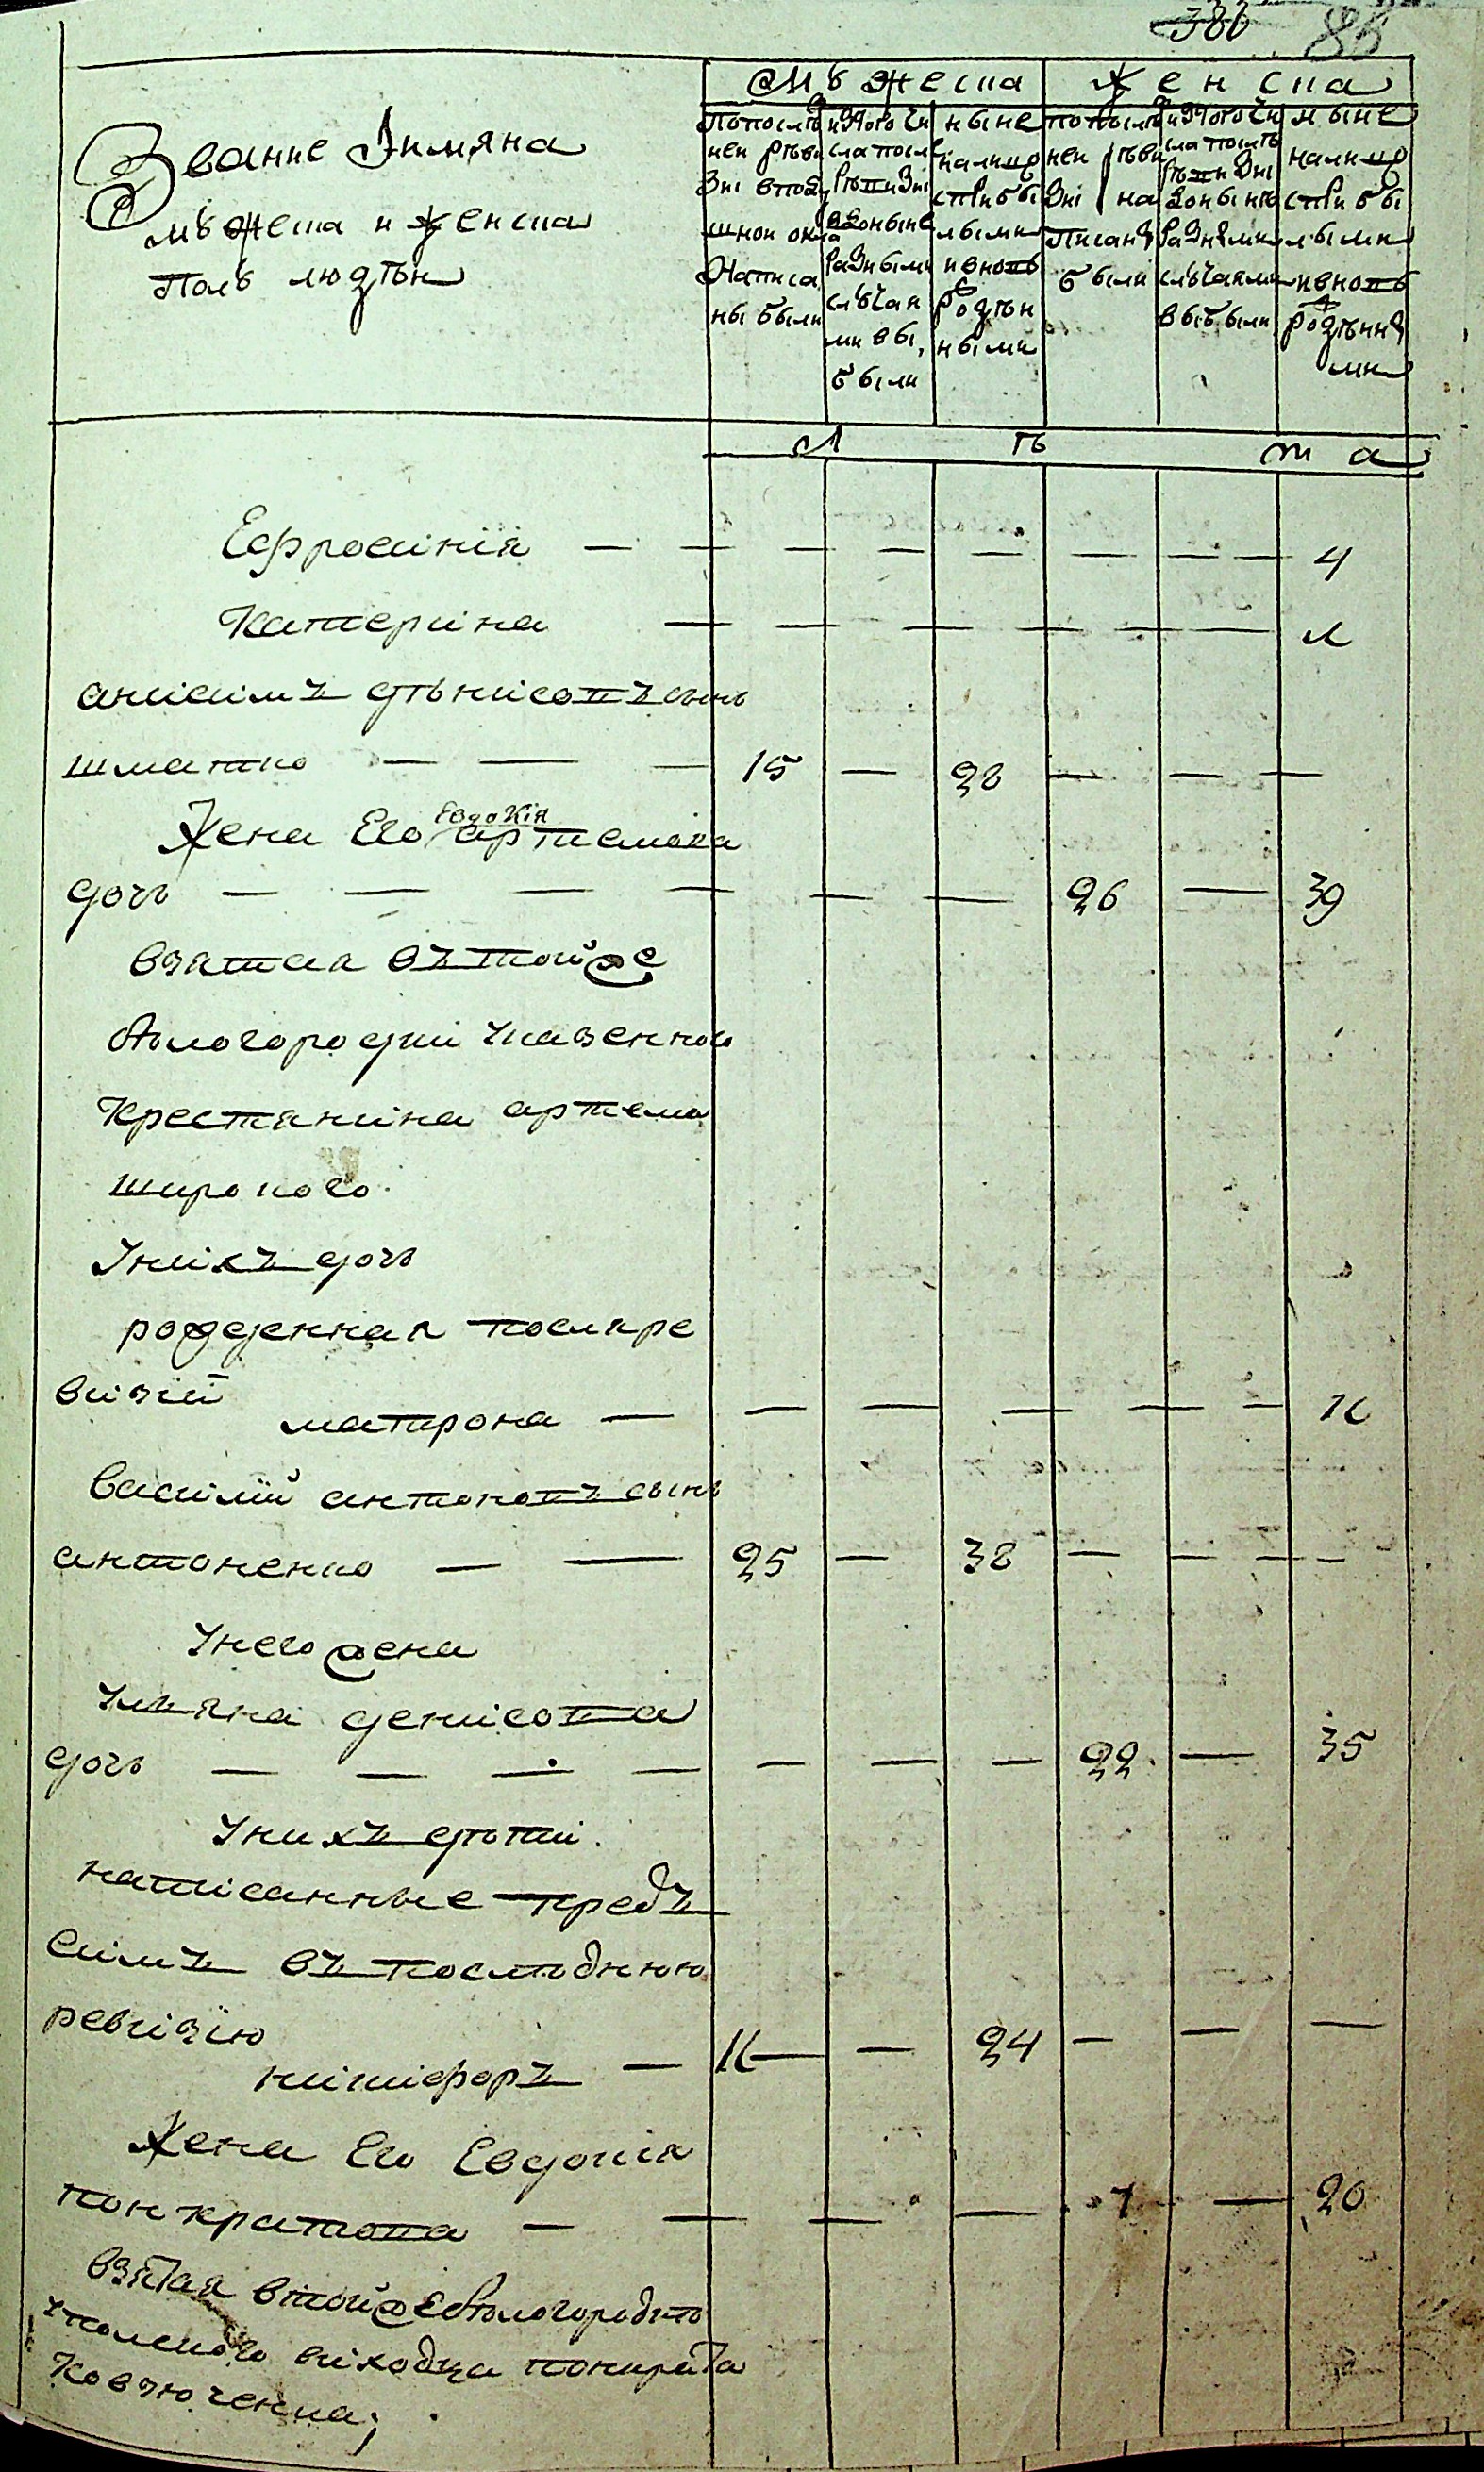 383 85
Мужеска Женска
Звание Имяна
мужеска и женска
полу людѣи
По послѣдней ревизіи в подушной окладъ написаны были
Изтого числа после ревизіи
разными случаями выбыли
Ныне налицо
и вновь рожденными
По последней ревизіи написаны были
Изтого числа после ревизіи разными случаями выбыли
Ныне налицо
и вновь рожденными
Л ѣ т а
Ефросинія — — — — — — — — 4
Катерина — — — — — — —
анисимъ дѣнисовъ сынъ
шматко — — — 15 — 28 — — —
Жена Его Евдокія артемова
дочь — — — — — — 26 — 39
взятая въ тойже
Бѣлогородки Указенного
крестянина артема
широкого.
Унихъ дочь
рожденная послѣре
визіи
матрона — — — — — — 1(
василій антоновъ сынъ
антоненко — — 25 — 38 — — — —
Унего жена
Уляна денисова
дочь — — — — — — — 22 — 35
Унихъ дѣти.
написанные предъ
симъ въ послѣднюю
ревизію
никифоръ — 1( — — 24 — — —
Жена Его Евдокія
понкратова — — — — 7 — 20
взятая втойже Бѣлогородкѣ
Уполского виходца понкрата
Ковзюченка;